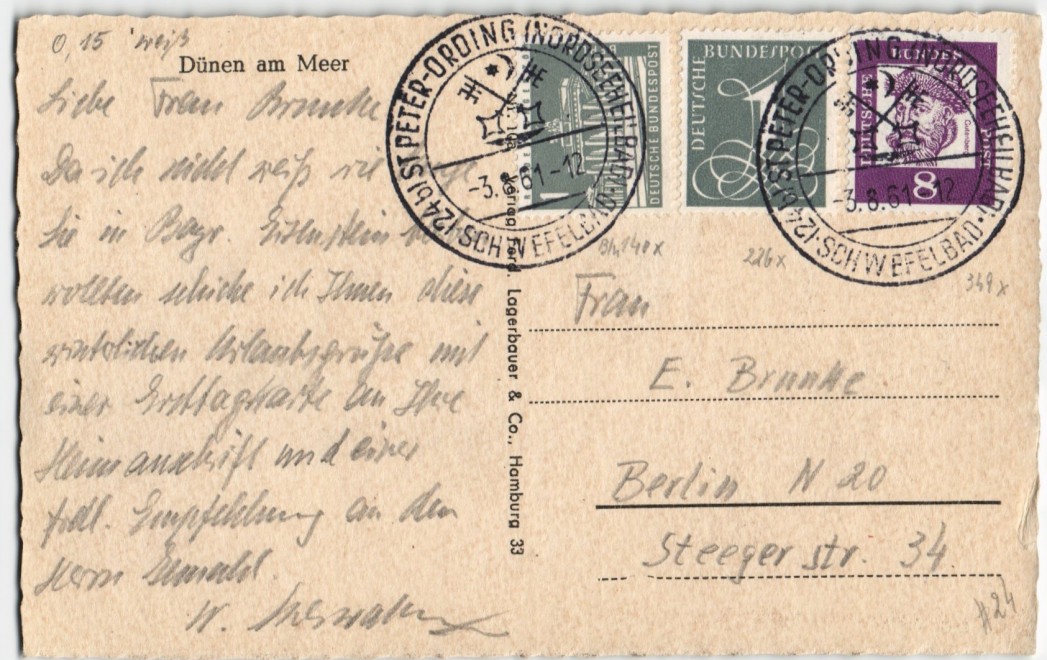 0,15 weiß
Dünen am Meer
Liebe Frau Brunke
Da ich nicht weiß wie lange
Sie in Bayr. Eisenstein
wollten schicke ich Ihnen diese
Urlaubsgrüße mit
einer Ersttagskarte an Ihre
Heimanschrift und einer
frdl. Empfehlung an den
Herrn Gemahl.
W.
Verlag Ferd. Lagerbauer & Co., Hamburg 33
(24b) ST. PETER-ORDING (NORDSEEHEILBAD)
SCHWEFELBAD
-3.8.61-12
DEUTSCHE BUNDESPOST
1
DEUTSCHE BUNDESPOST
1
(24b) ST. PETER-ORDING (NORDSEEHEILBAD)
SCHWEFELBAD
-3.8.61-12
DEUTSCHE BUNDESPOST
Gutenberg
8
Bln 140x
226x
349x
Frau
E. Brunke
Berlin N 20
Steegerstr. 34
#24